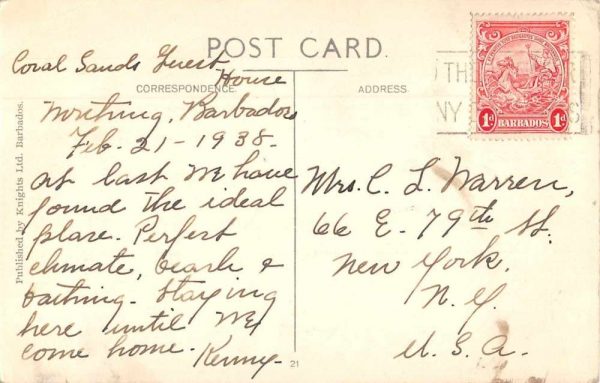 POST CARD.
CORRESPONDENCE.
ADDRESS.
Coral Sands Guest
House
Worthing, Barbados
Feb. 21-1938.
At last we have
found the ideal
place. Perfect
climate, beach &
bathing. Staying
here until we
come home.
Kenny-
Mrs. C. L. Warren,
66 E- 79th St.
New York.
N. Y.
U. S. A.
Published by Knights Ltd. Barbados.
21
1d BARBADOS 1d
TH
NY
S